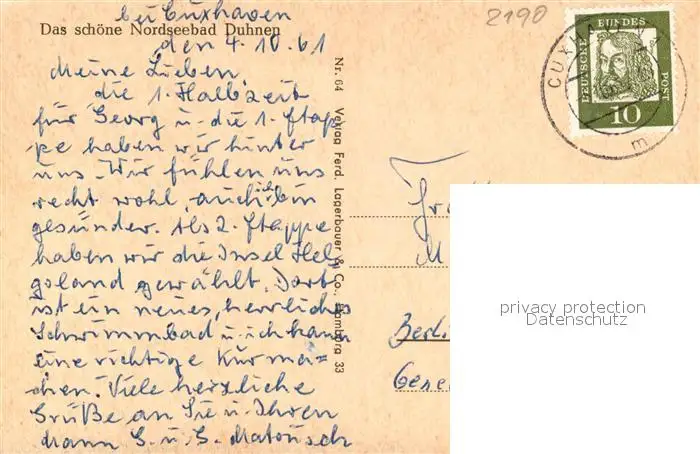 bei Cuxhaven
Das schöne Nordseebad Duhnen
den 4.10.61
Meine Lieben,
die 1. Halbzeit
für Georg u. die 1. Etap-
pe haben wir hinter
uns. Wir fühlen uns
recht wohl, auch ich bin
gesünder. Als 2. Etappe
haben wir die Insel Hel-
goland gewählt. Dort
ist ein neues, herrliches
Schwimmbad u. ich kann
eine richtige Kur ma-
chen. Viele herzliche
Grüße an Sie u. Ihren
Mann G. u. G. Matousch
Nr. 64 Verlag Ferd. Lagerbauer & Co., Hamburg 33
2190
DEUTSCHE BUNDESPOST
10
CUXHA
m
Fr
M
Berli
Gene
privacy protection
Datenschutz